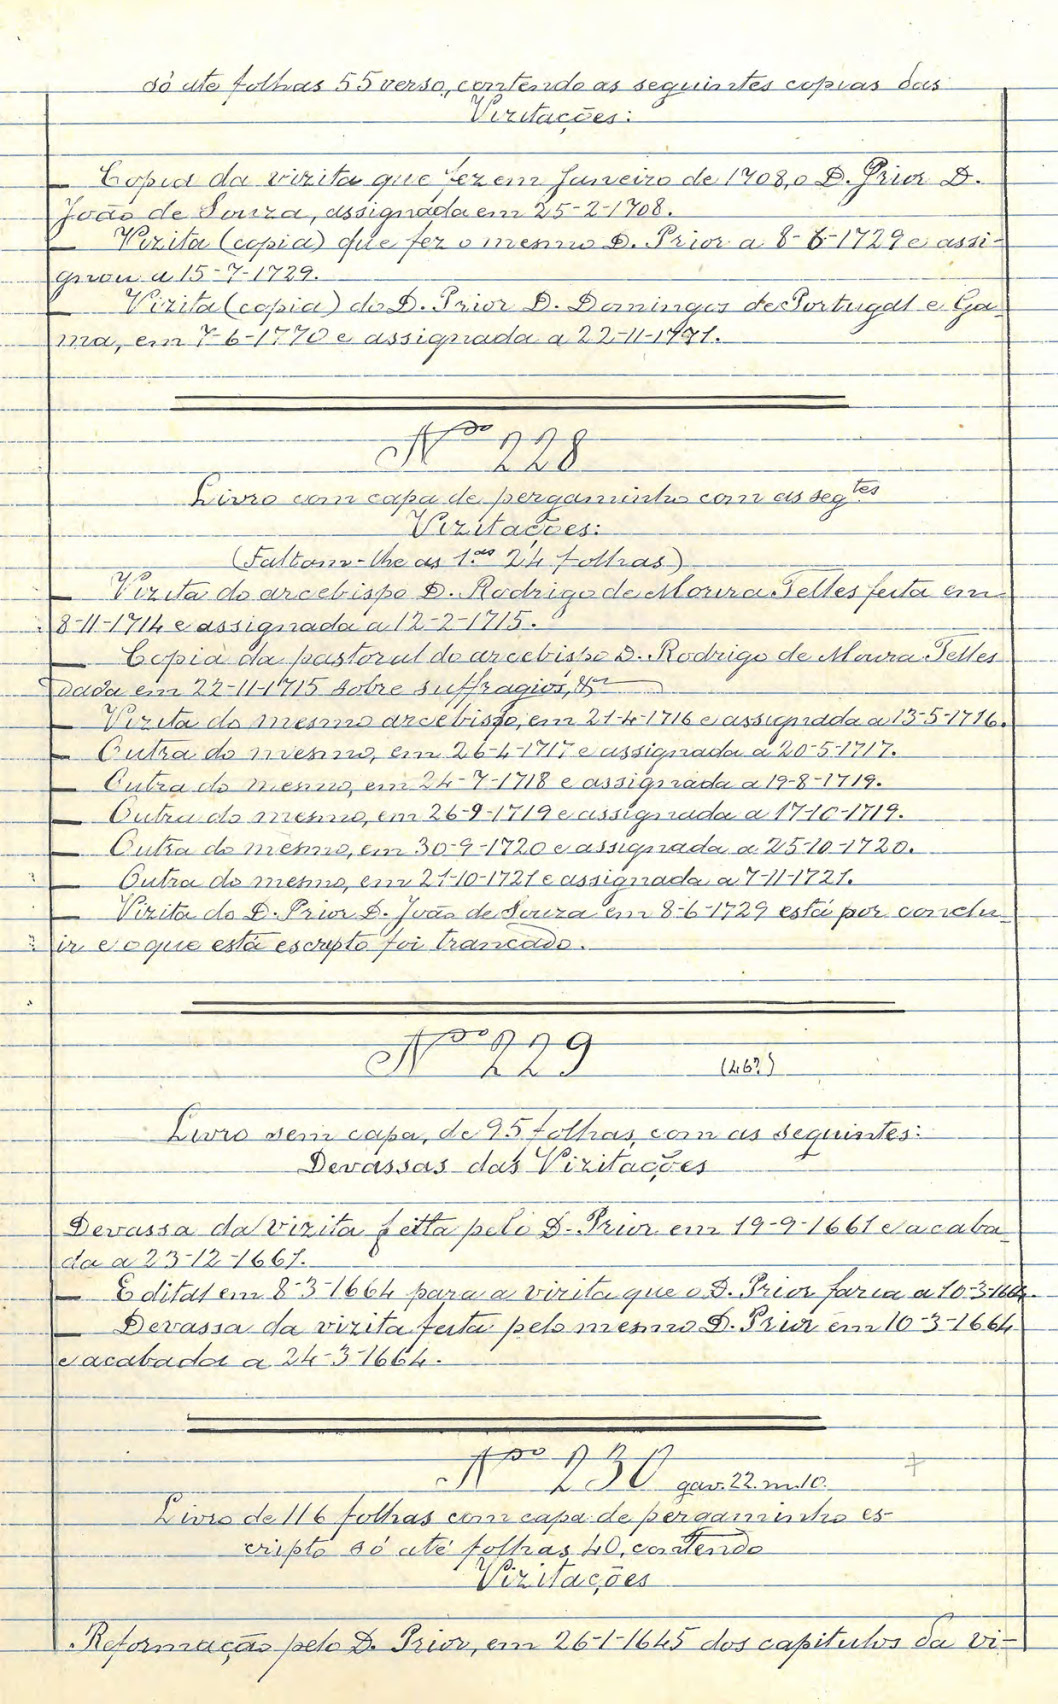 só ate folhas 55 verso, contendo as seguintes copias das
Vizitações:
— Copia da vizita que fez em Janeiro de 1708, o D. Prior D.
João de Souza, assignada em 25-2-1708.
— Vizita (copia) que fez o mesmo D. Prior a 8-6-1729 e assi-
gnou a 15-7-1729.
Vizita (copia) do D. Prior D. Domingos de Portugal e Ga-
ma, em 7-6-1770 e assignada a 22-11-1771.
Nº 228
Livro com capa de pergaminho com as segtes
Vizitações:
(Faltam-lhe as 1.as 24 folhas)
— Vizita do arcebispo D. Rodrigo de Moura Telles feita em
8-11-1714 e assignada a 12-2-1715.
— Copia da pastoral do arcebispo D. Rodrigo de Moura Telles
dada em 22-11-1715 sobre suffragios, &
— Vizita do mesmo arcebispo, em 21-4-1716 e assignada a 13-5-1716.
— Outra do mesmo, em 26-4-1717 e assignada a 20-5-1717.
— Outra do mesmo, em 24-7-1718 e assignada a 19-8-1719.
— Outra do mesmo, em 26-9-1719 e assignada a 17-10-1719.
— Outra do mesmo, em 30-9-1720 e assignada a 25-10-1720.
— Outra do mesmo, em 21-10-1721 e assignada a 7-11-1721.
— Vizita do D. Prior D. João de Souza em 8-6-1729 está por conclu-
ir e o que está escripto foi trancado.
Nº 229 (46?)
Livro sem capa, de 95 folhas, com as seguintes:
Devassas das Vizitações
Devassa da vizita feitta pelo D. Prior em 19-9-1661 e acaba-
da a 23-12-1661.
— Edital em 8-3-1664 para a vizita que o D. Prior faria a 10-3-1664.
— Devassa da vizita feita pelo mesmo D. Prior em 10-3-1664
e acabada a 24-3-1664.
Nº 230 gav. 22. m. 10.
Livro de 116 folhas com capa de pergaminho es-
cripto só até folhas 40, contendo
Vizitações
Reformação pelo D. Prior, em 26-1-1645 dos capitulos da vi-